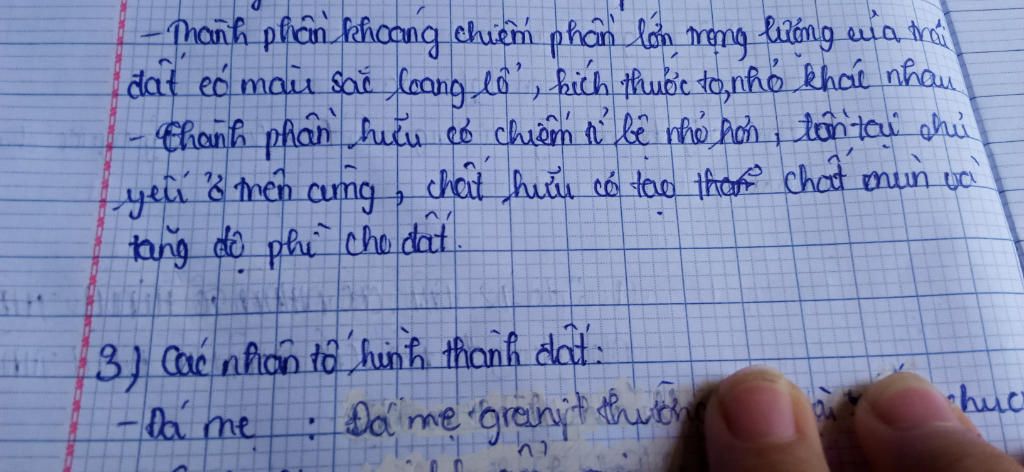 - Thành phần khoáng chiếm phần lớn trọng lượng của trái
đất có màu sắc loang lổ, kích thước to, nhỏ khác nhau
- Thành phần hữu cơ chiếm tỉ lệ nhỏ hơn, tồn tại chủ
yếu ở trên cùng, chất hữu cơ tạo chất mùn và
tăng độ phì cho đất.
3) Các nhân tố hình thành đất:
- Đá mẹ : Đá mẹ granit thường